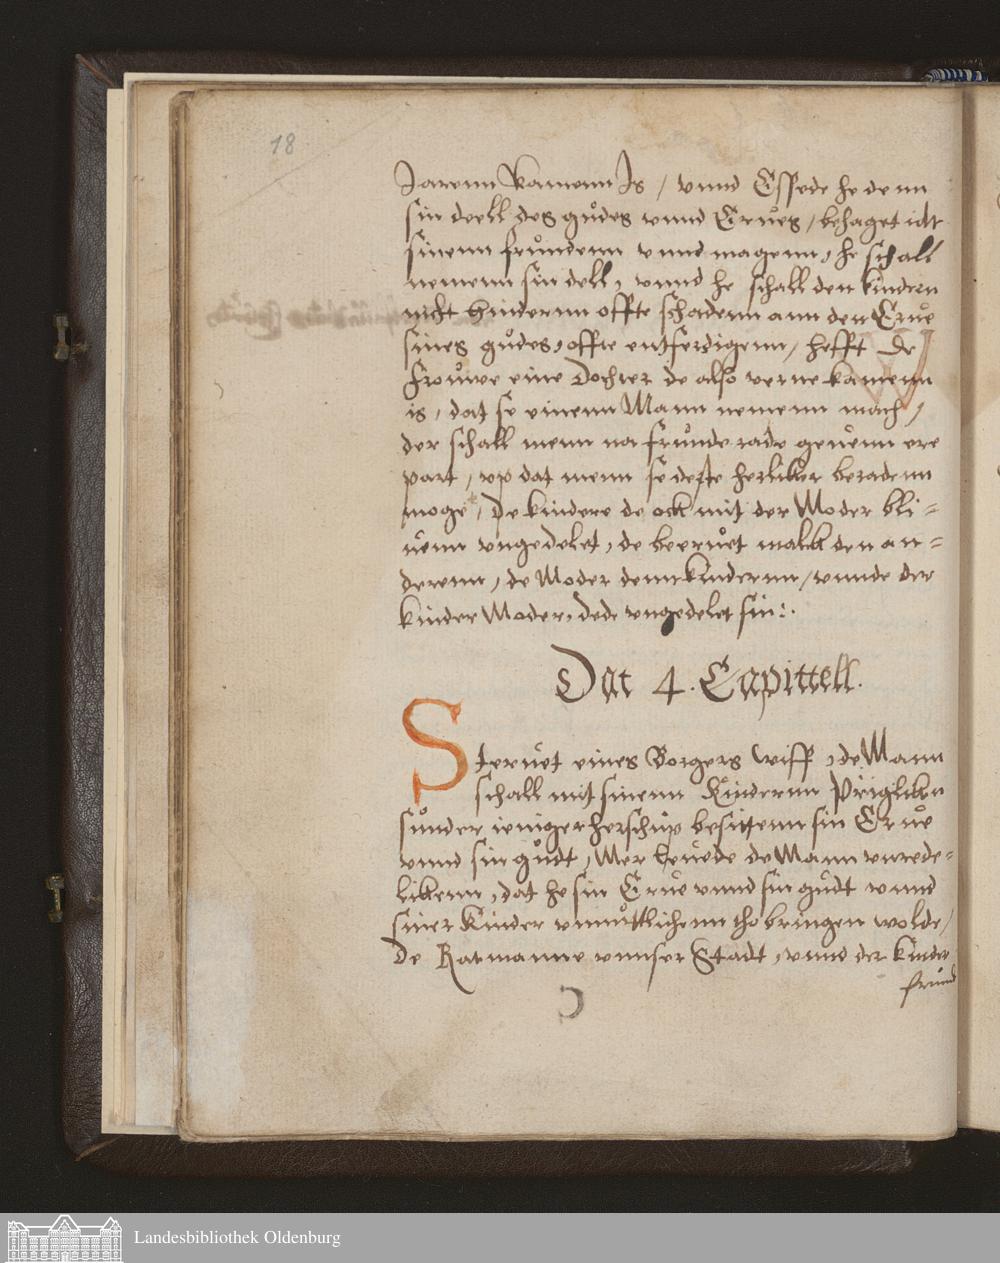 18
Jarenn kamenn Is / vnnd Esschede he denn
sin deell des gůdes vnnd Erues, behaget idt
sinenn frůndenn vnnd magenn, he schall
nemenn sin dell, vnnd he schall den kindern
nicht hindernn offte schadenn ann den Erue
sines gůdes, offte entferdigenn, hefft de
frouwe eine dochter de also verne kamenn
is, dat se einenn Mann nemenn mach,
der schall menn na frůnde rade geuenn ere
part, vp dat menn se deste herliker beradenn
moge, De kindere de ock mit der Moder bli-
uenn vngedelet, de beeruet malck den an-
derenn, de Moder denn kindernn, vnnde der
kinder Moder, dede vngedelet sin:.
Dat 4. Capittell.
Steruet eines Borgers wiff, de Mann
schall mit sinenn Kindernn
sunder ieniger herschup besittenn sin Erue
vnnd sin gůdt, Mer de Mann vnrede-
likenn, dat he sin Erue vnnd sin gůdt vnnd
siner Kinder vnnůttlichenn tho bringen wolde,
De Ratmanne vnnser Stadt, vnnd der kinder
frund
Landesbibliothek Oldenburg